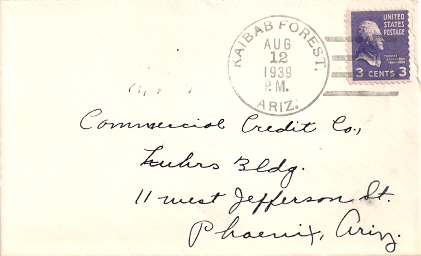 KAIBAB FOREST.
AUG
12
1939
P.M.
ARIZ.
UNITED
STATES
POSTAGE
3 CENTS 3
Commercial Credit Co.,
Luhrs Bldg.
11 west Jefferson St.
Phoenix, Ariz.